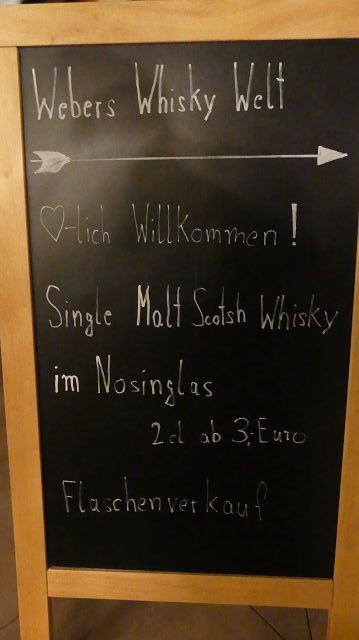 Webers Whisky Welt
♡-lich Willkommen!
Single Malt Scotsh Whisky
im Nosinglas
2cl ab 3,- Euro
Flaschenverkauf